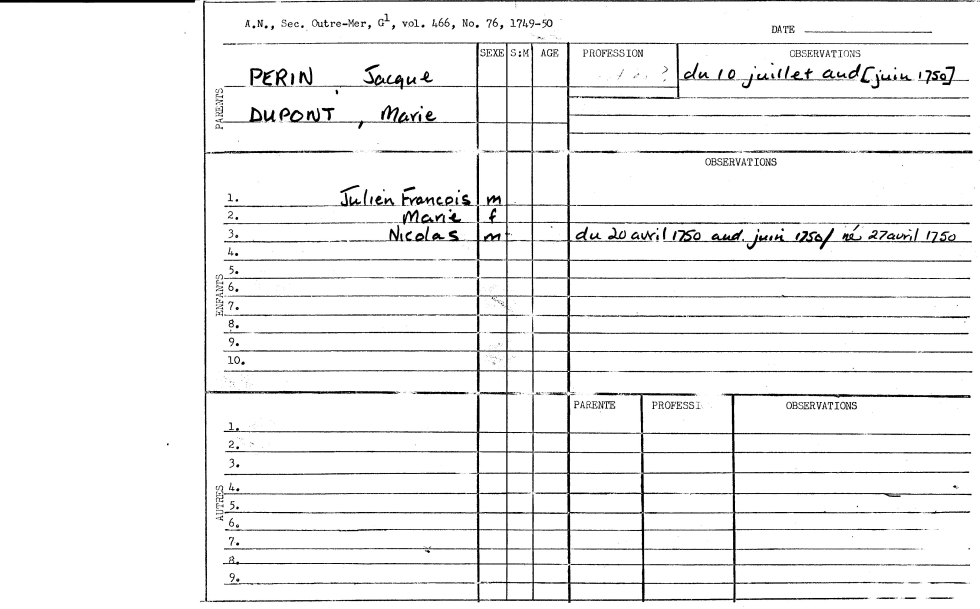 A.N., Sec. Outre-Mer, G1, vol. 466, No. 76, 1749-50
DATE
SEXE S:M AGE PROFESSION OBSERVATIONS
PARENTS
PERIN, Jacque ? du 10 juillet aud [juin 1750]
DUPONT, Marie
OBSERVATIONS
ENFANTS
1. Julien Francois m
2. Marie f
3. Nicolas m du 20 avril 1750 aud. juin 1750/ né 27 avril 1750
4.
5.
6.
7.
8.
9.
10.
PARENTE PROFESSI OBSERVATIONS
AUTRES
1.
2.
3.
4.
5.
6.
7.
8.
9.